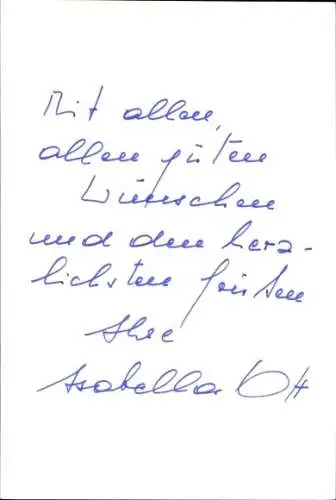 Mit allen,
allen guten
Wünschen
und den herz-
lichsten Grüßen
Ihre
Isabella